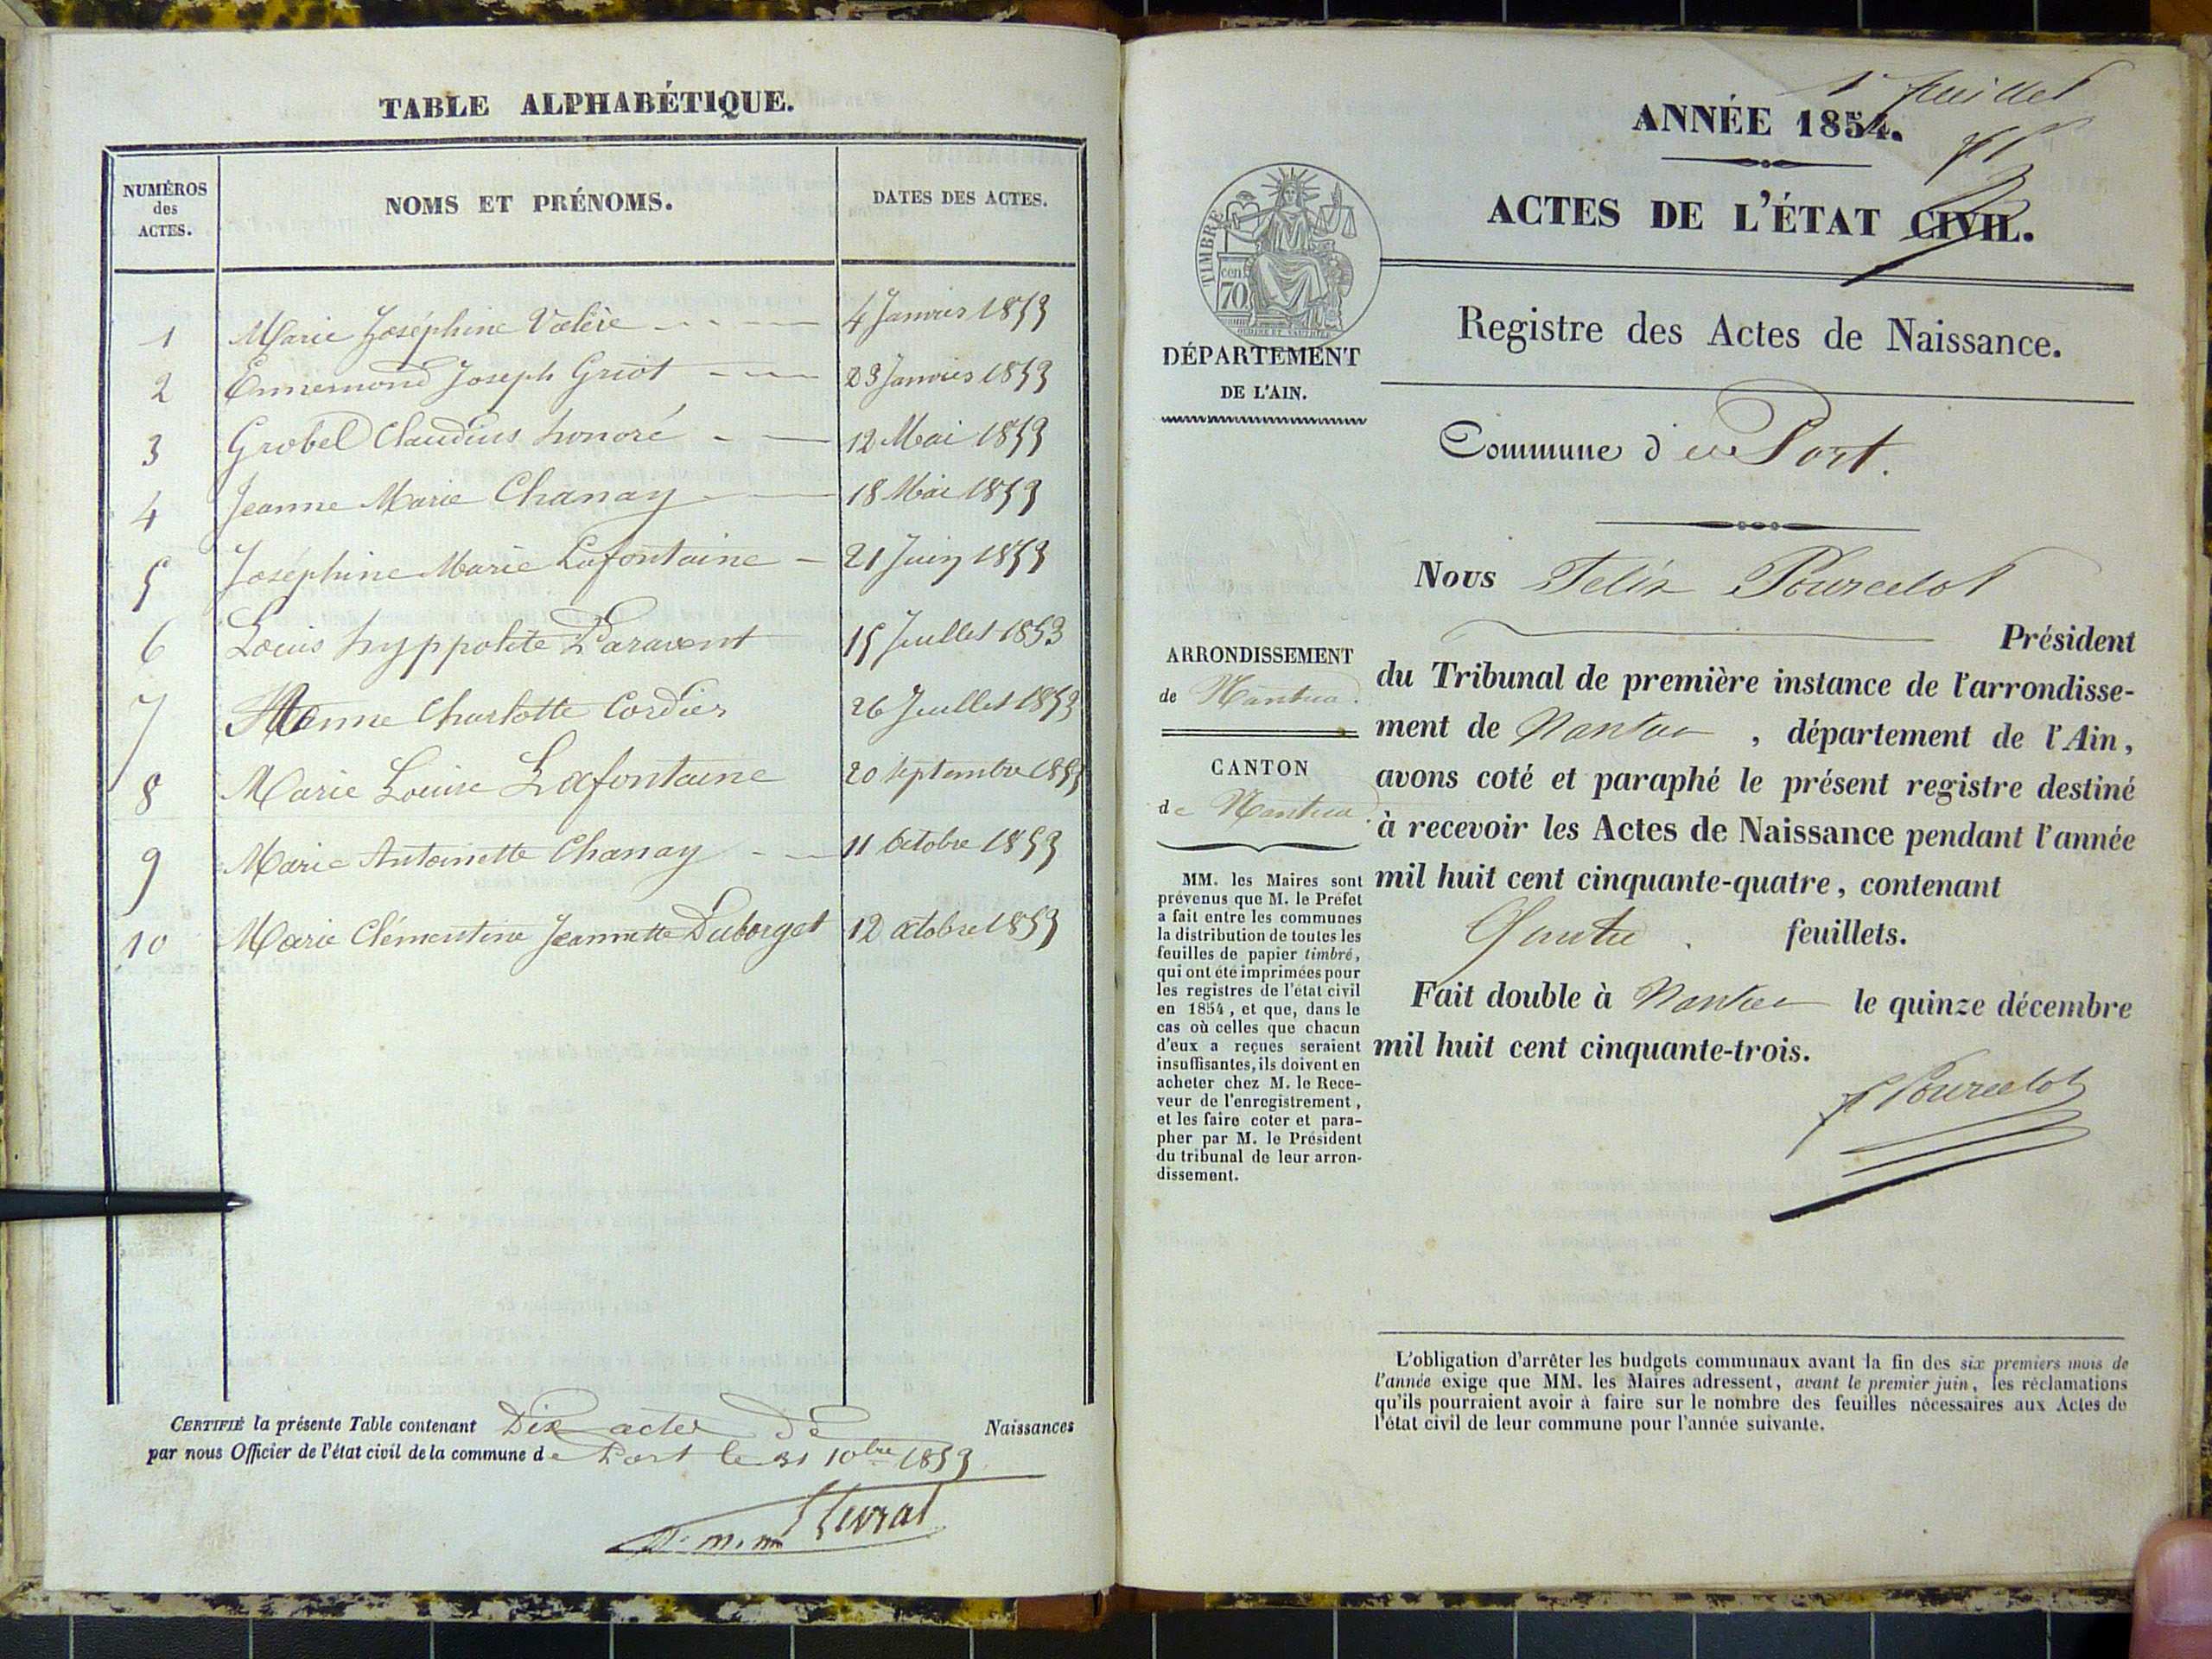 TABLE ALPHABÉTIQUE.
NUMÉROS
des
ACTES.
NOMS ET PRÉNOMS.
DATES DES ACTES.
1 Marie Joséphine Valère 4 Janvier 1853
2 Ennemond Joseph Griot 23 Janvier 1853
3 Grobel Claudius honoré 12 Mai 1853
4 Jeanne Marie Chanay 18 Mai 1853
5 Joséphine Marie Lafontaine 21 Juin 1853
6 Louis hyppolite Paravent 15 Juillet 1853
7 Charlotte Cordier 26 Juillet 1853
8 Marie Louise Lafontaine 20 septembre 1853
9 Marie Antoinette Chanay 11 Octobre 1853
10 Marie Clémentine Jeannette Duborget 12 octobre 1853
CERTIFIÉ la présente Table contenant Dix actes de Naissances
par nous Officier de l'état civil de la commune de Port le 31 10bre 1853
1er feuillet
ANNÉE 1854.
ACTES DE L'ÉTAT CIVIL.
TIMBRE
cen
70
Registre des Actes de Naissance.
DÉPARTEMENT
DE L'AIN.
Commune de Port.
Nous Félix Pourcelot
Président
du Tribunal de première instance de l'arrondisse-
ment de Nantua, département de l'Ain,
avons coté et paraphé le présent registre destiné
à recevoir les Actes de Naissance pendant l'année
mil huit cent cinquante-quatre, contenant
feuillets.
Fait double à Nantua le quinze décembre
mil huit cent cinquante-trois.
F Pourcelot
ARRONDISSEMENT
de Nantua.
CANTON
de Nantua.
MM. les Maires sont
prévenus que M. le Préfet
a fait entre les communes
la distribution de toutes les
feuilles de papier timbré,
qui ont été imprimées pour
les registres de l'état civil
en 1854, et que, dans le
cas où celles que chacun
d'eux a reçues seraient
insuffisantes, ils doivent en
acheter chez M. le Rece-
veur de l'enregistrement,
et les faire coter et para-
pher par M. le Président
du tribunal de leur arron-
dissement.
L'obligation d'arrêter les budgets communaux avant la fin des six premiers mois de
l'année exige que MM. les Maires adressent, avant le premier juin, les réclamations
qu'ils pourraient avoir à faire sur le nombre des feuilles nécessaires aux Actes de
l'état civil de leur commune pour l'année suivante.